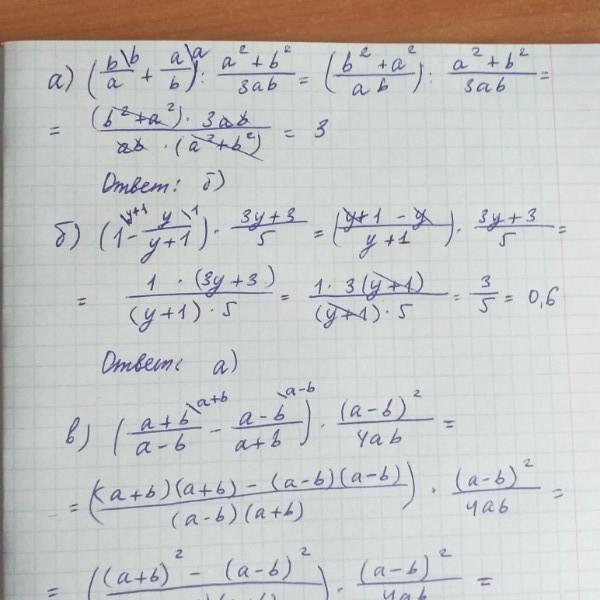 а) (b\b/a + a\a/b) : a² + b²/3ab = (b² + a²/ab) : a² + b²/3ab =
= (b² + a²) · 3ab/ab · (a² + b²) = 3
Ответ: б)
б) (1\y+1 - y\1/y+1) · 3y+3/5 = (y+1 - y/y+1) · 3y+3/5 =
= 1 · (3y+3)/(y+1) · 5 = 1 · 3(y+1)/(y+1) · 5 = 3/5 = 0,6
Ответ: а)
в) (a+b\a+b/a-b - a-b\a-b/a+b) · (a-b)²/4ab =
= ((a+b)(a+b) - (a-b)(a-b)/(a-b)(a+b)) · (a-b)²/4ab =
= ((a+b)² - (a-b)²/) · (a-b)²/4ab =